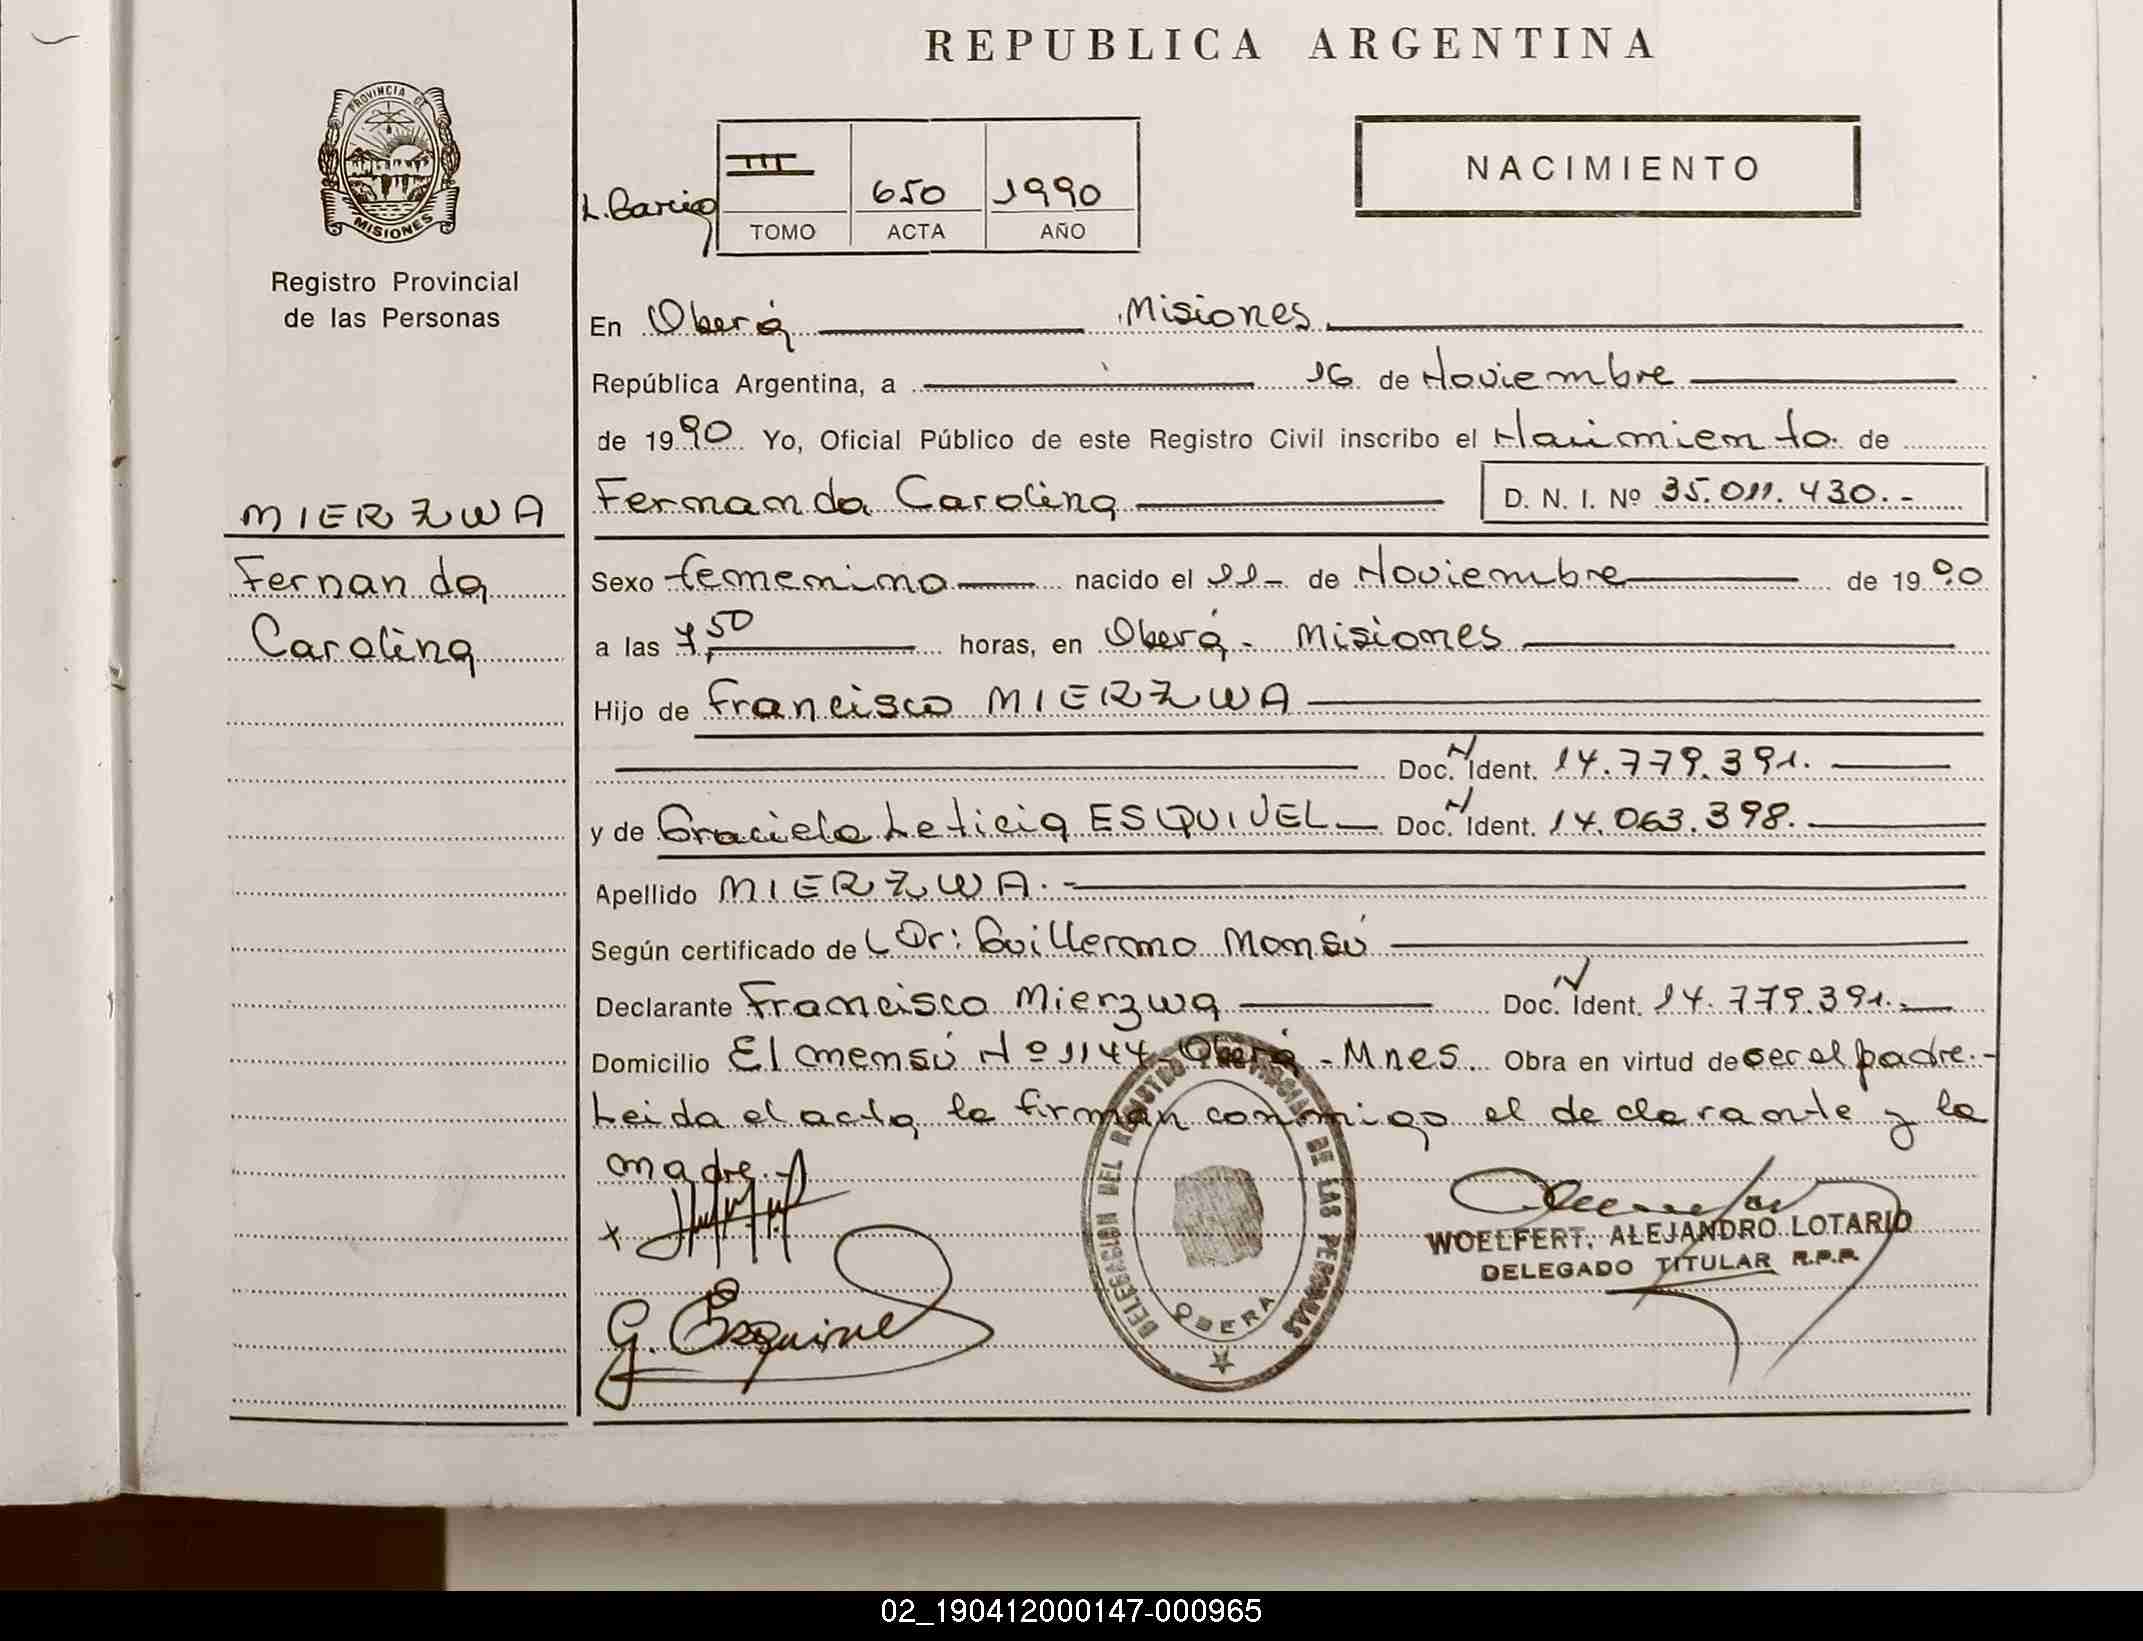 REPUBLICA ARGENTINA
PROVINCIA DE
MISIONES
Registro Provincial
de las Personas
III 650 1990
TOMO ACTA AÑO
NACIMIENTO
En Oberá Misiones
República Argentina, a 16 de Noviembre
de 1990 Yo, Oficial Público de este Registro Civil inscribo el Nacimiento de
MIERZWA
Fernanda
Carolina
Fernanda Carolina D. N. I. Nº 35.011.430.-
Sexo femenino nacido el 11- de Noviembre de 1990
a las 7,50 horas, en Oberá - Misiones
Hijo de Francisco MIERZWA
Doc. N Ident. 14.779.391.
y de Graciela Leticia ESQUIVEL Doc. N Ident. 14.063.398.
Apellido MIERZWA.-
Según certificado de Dr: Guillermo Monsú
Declarante Francisco Mierzwa Doc. N Ident. 14.779.391.-
Domicilio El mensú Nº 1144 - Oberá - Mnes. Obra en virtud de ser el padre.-
Leida el acta, la firman conmigo el declarante y la
madre.-
x
G. Esquivel
DELEGACION DEL REGISTRO PROVINCIAL DE LAS PERSONAS
OBERA
WOELFERT, ALEJANDRO LOTARIO
DELEGADO TITULAR R.P.P.
02_190412000147-000965